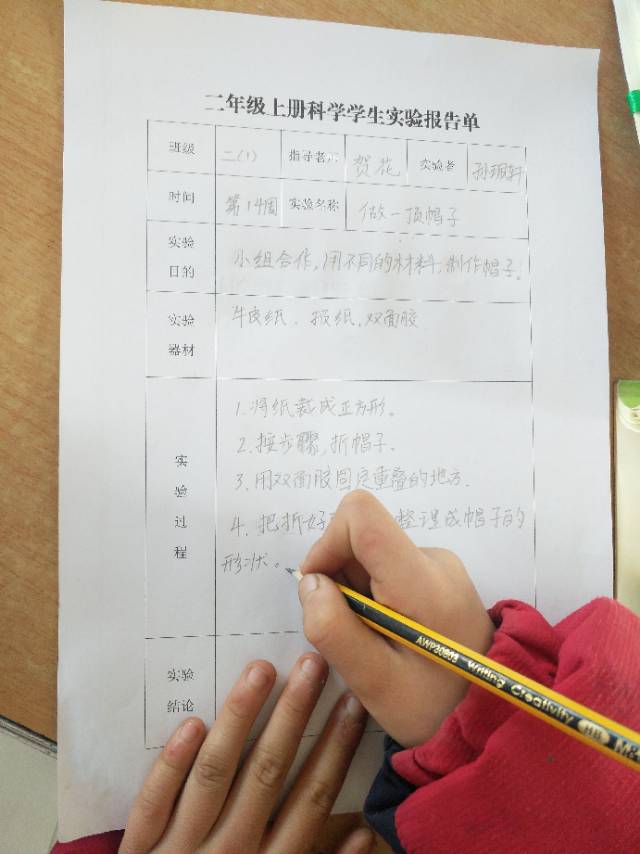 二年级上册科学学生实验报告单
班级 二(1) 指导老师 贺花 实验者 孙珮轩
时间 第14周 实验名称 做一顶帽子
实验
目的
小组合作,用不同的材料,制作帽子。
实验
器材
牛皮纸、报纸,双面胶
实
验
过
程
1.将纸裁成正方形。
2.按步骤,折帽子.
3.用双面胶固定重叠的地方.
4.把折好 整理成帽子的
形状。
实验
结论
AWP30803 Writing Creativity HB